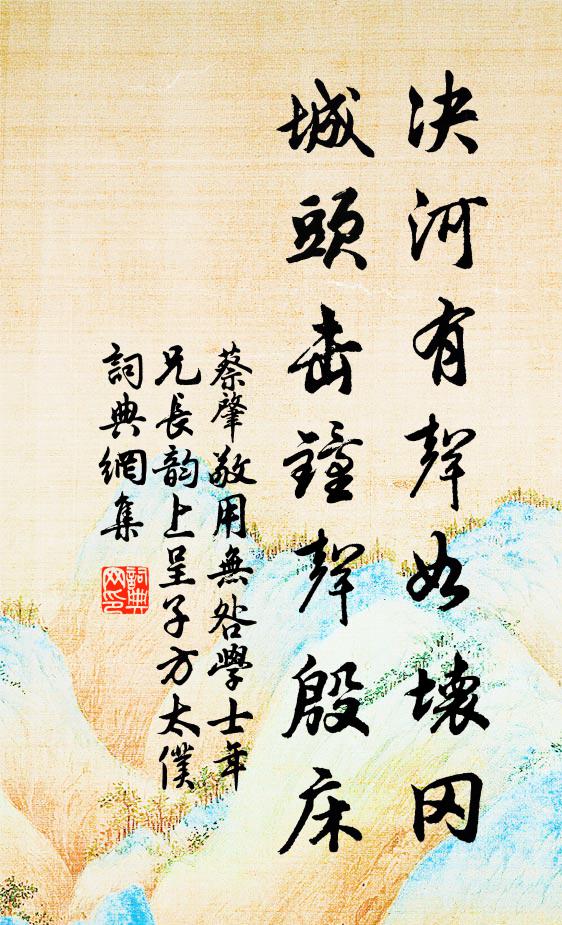 决河有聲如壞冈
城頭击鐘聲殷床
蔡肇敬用無咎學士年
兄長韵上呈子方太僕
詞典網集
詞典
网印